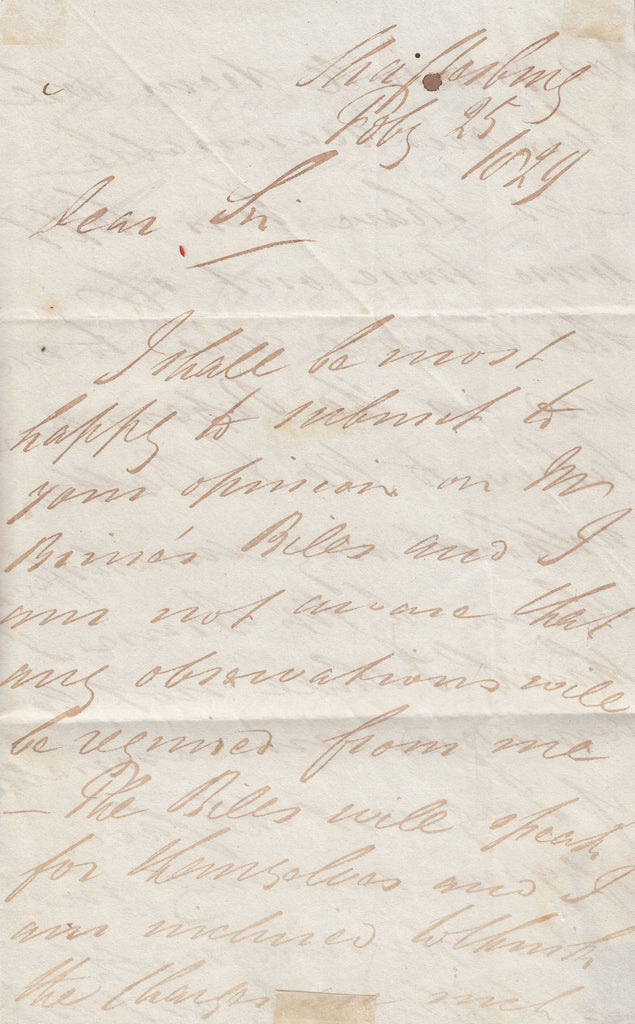 Shaftesbury
Feby 25
1829
Dear Sir
I shall be most
happy to submit to
your opinion on Mr
Brine's Bills and I
am not aware that
any observations will
be required from me
— The Bills will speak
for themselves and I
am inclined to think
the Charges are such